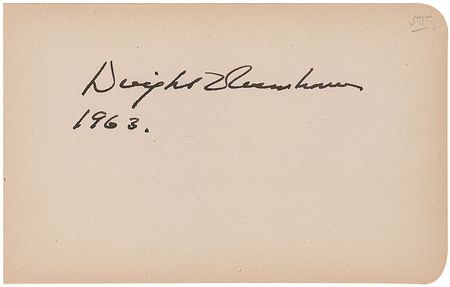 Dwight Eisenhower
1963.